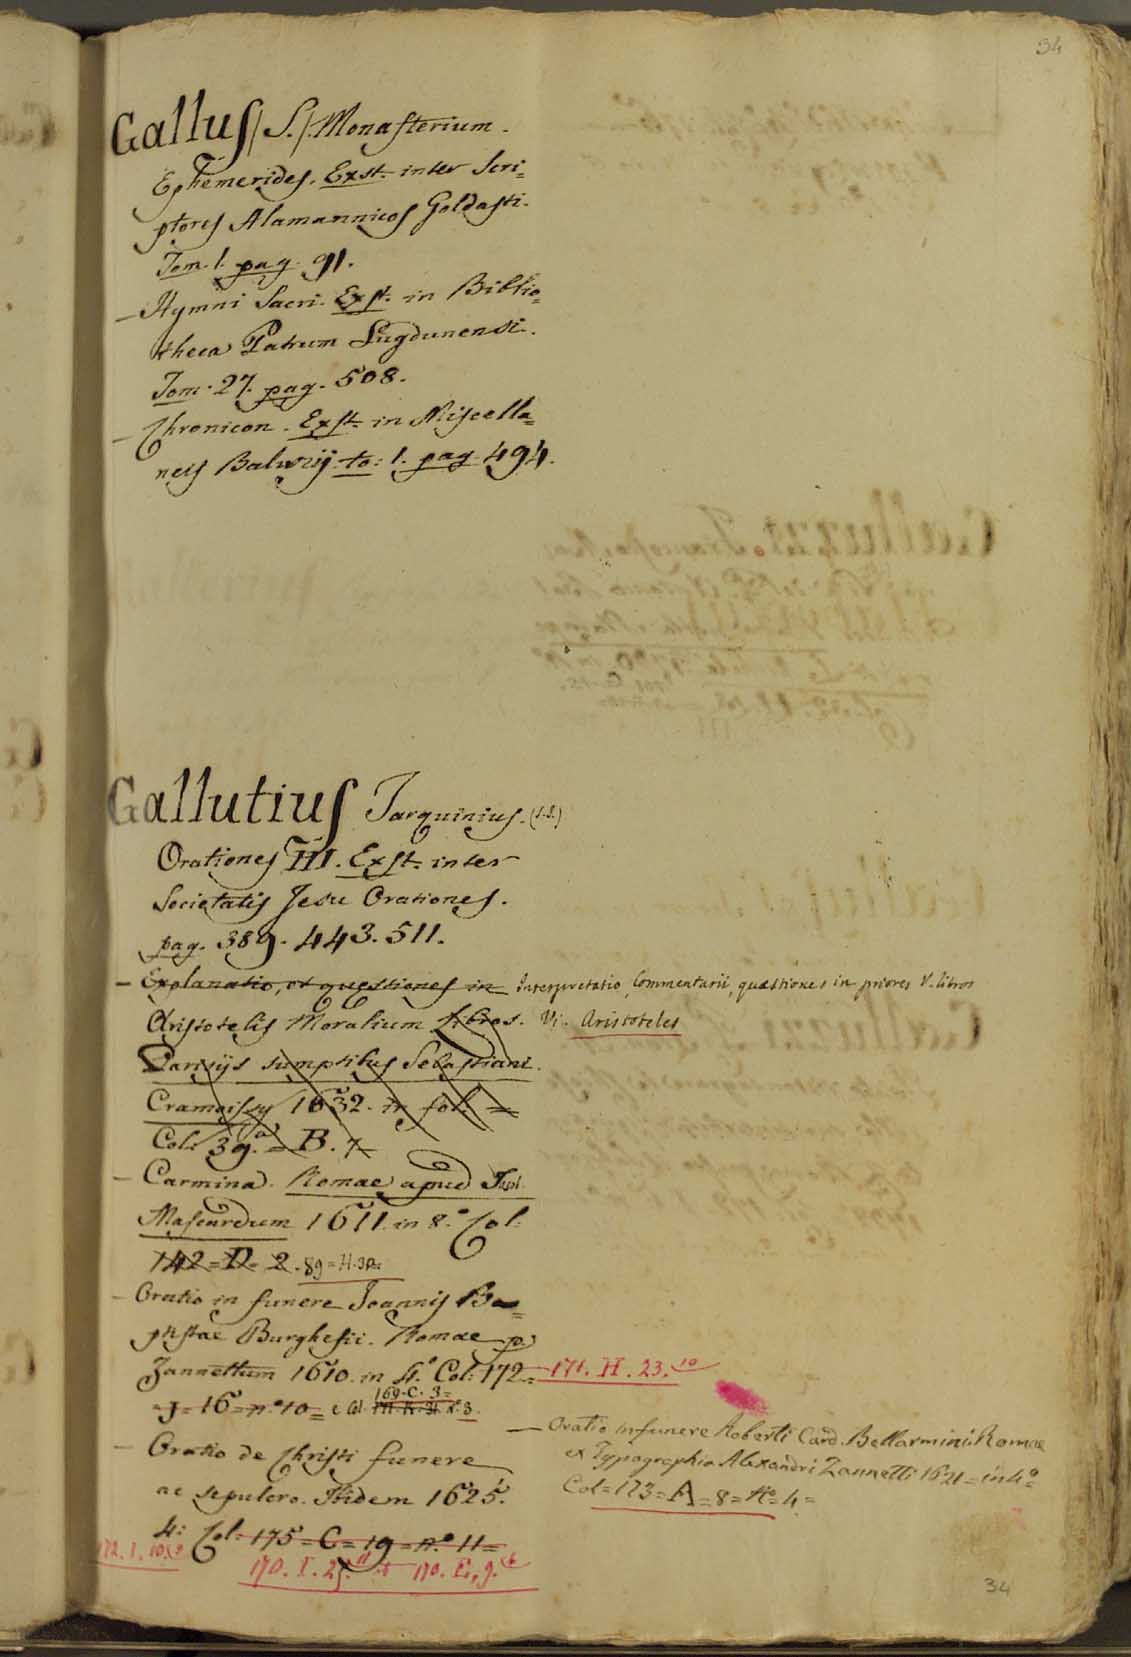 34
Gallus /S./ Monasterium.
Ephemerides. Exst. inter Scri=
ptores Alamannicos Goldasti.
Tom. 1. pag. 91.
— Hymni Sacri. Exst. in Biblio=
theca Patrum Lugdunensi.
Tom. 27. pag. 508.
— Chronicon. Exst. in Miscella=
neis Baluzij to: 1. pag. 494.
Gallutius Tarquinius. (S.J.)
Orationes III. Exst. inter
Societatis Jesu Orationes.
pag. 389. 443. 511.
— Explanatio, et quæstiones in Interpretatio, Commentarii, quæstiones in priores V. libros
Aristotelis Moralium libros. Vi. Aristoteles
Parisijs sumptibus Sebastiani
Cramoisy 1632. in fol. =
Col: 39.a = B. 7
— Carmina. Romae apud Jacob.
Mascardum 1611. in 8.o Col:
142 = D = 2. 89 = H. 32.
— Oratio in funere Joannis Ba=
ptistae Burghesii. Romae p.
Zannettum 1610. in 4.o Col: 172 = 171. H. 23. 10
J = 16 = n.o 10 = e Col. 169. C. 3 = 3.
— Oratio de Christi funere
ac sepulcro. Ibidem 1625.
4: Col: 175 = C = 19 = n.o 11 =
172. I. 10. 170. I. 25. 11 170. E. 9. 6
— Oratio in funere Roberti Card. Bellarmini. Romae
ex Typographia Alexandri Zannetti 1621 = in 4.o =
Col = 173 = A = 8 = N.o = 4 =
34